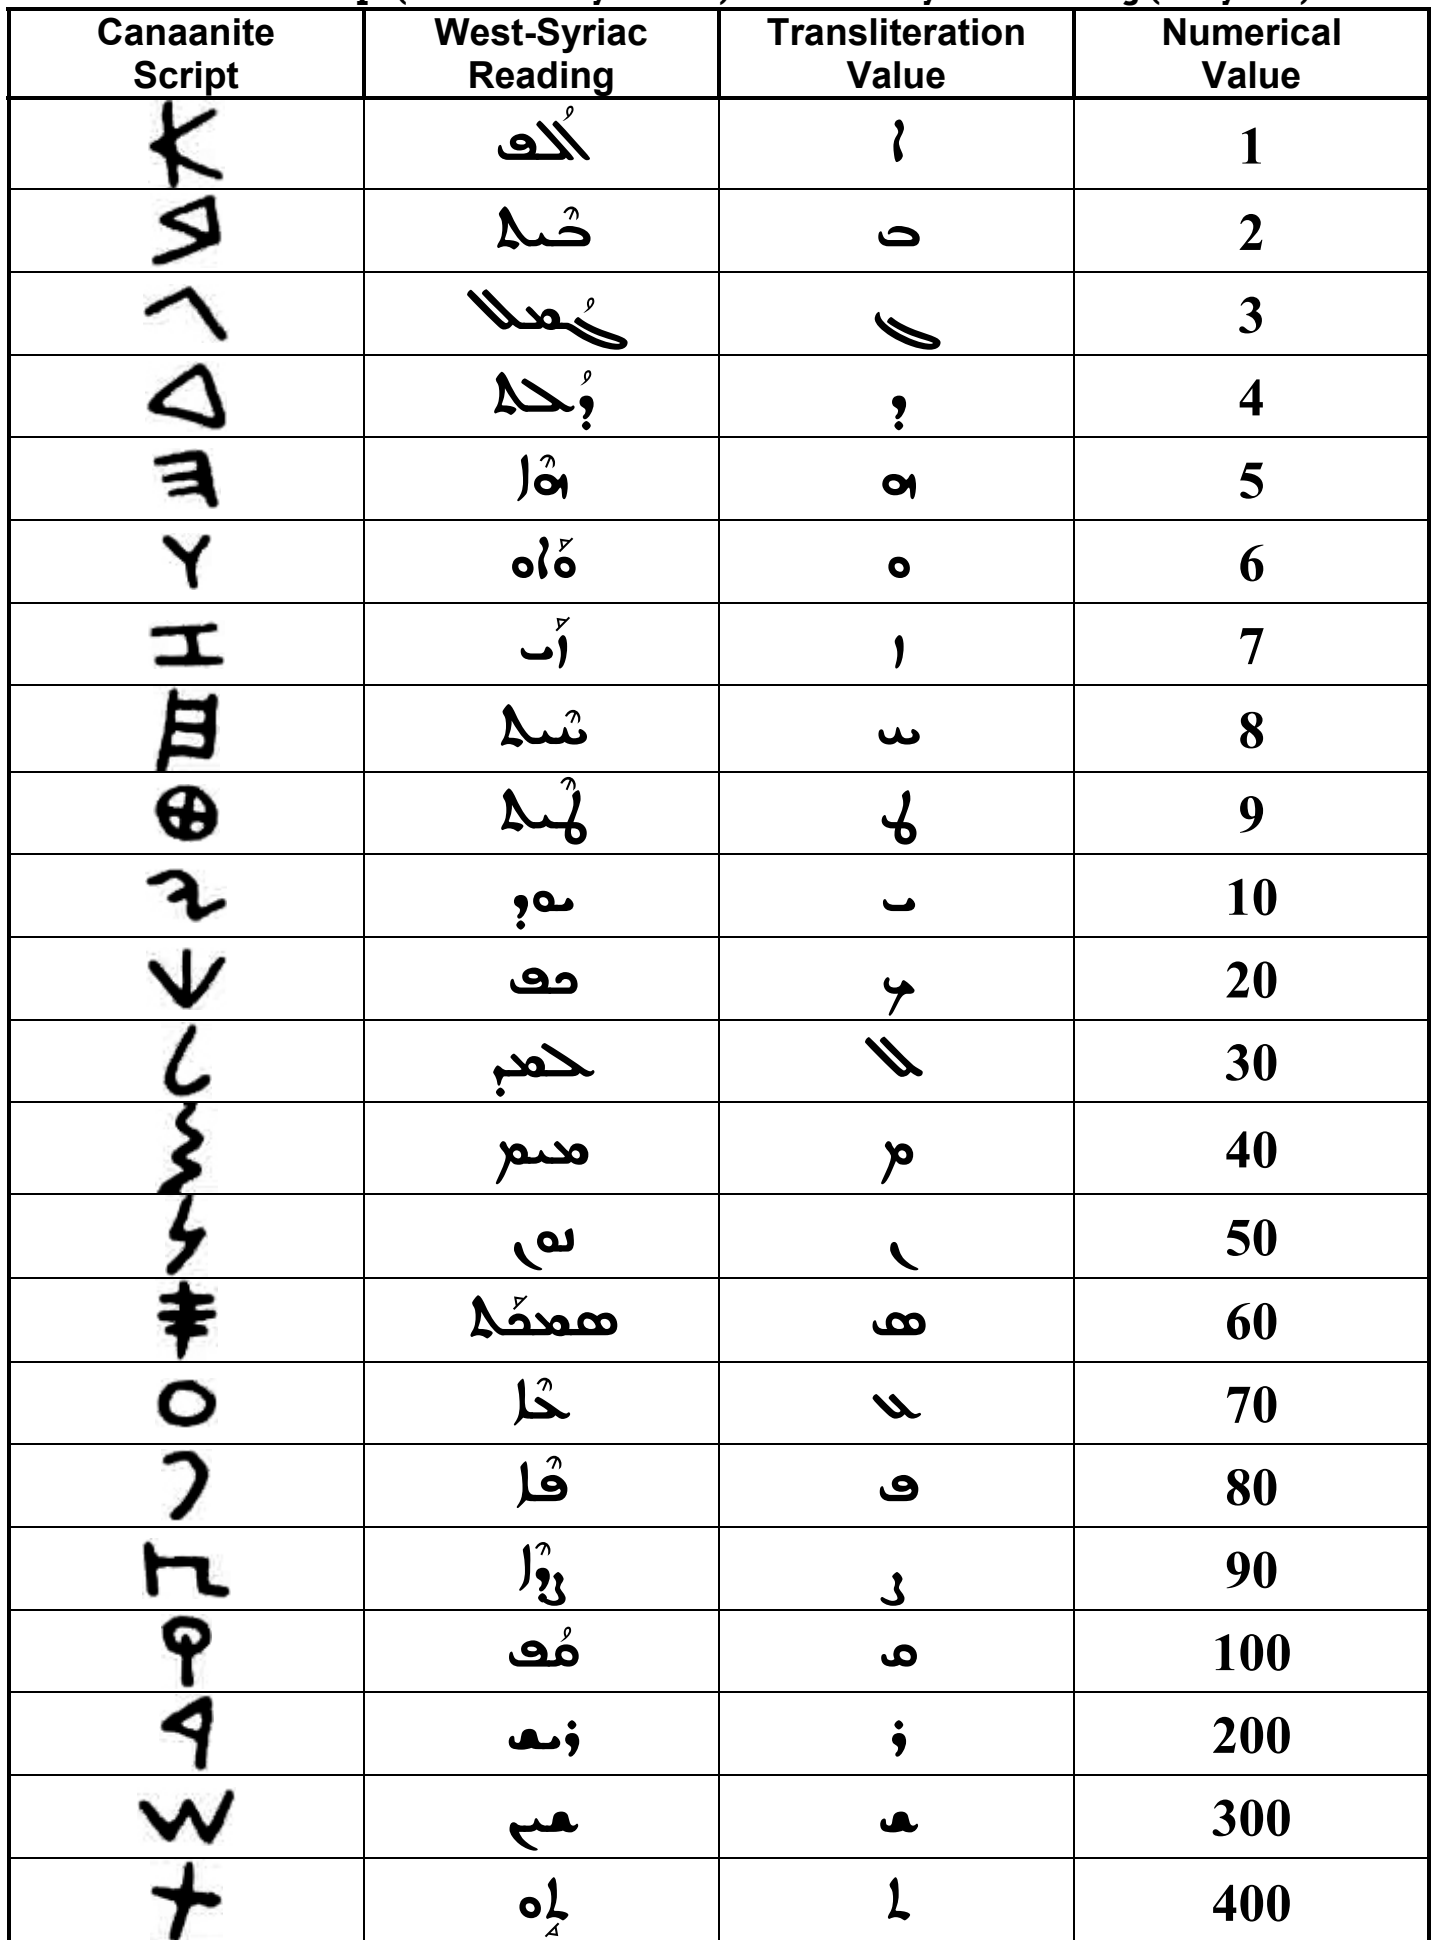 Canaanite Script West-Syriac Reading Transliteration Value Numerical Value
𐤀 ܐܳܠܦ ܐ 1
𐤁 ܒܶܝܬ ܒ 2
𐤂 ܓܳܡܠ ܓ 3
𐤃 ܕܳܠܬ ܕ 4
𐤄 ܗܶܐ ܗ 5
𐤅 ܘܰܐܘ ܘ 6
𐤆 ܙܰܝ ܙ 7
𐤇 ܚܶܝܬ ܚ 8
𐤈 ܛܶܝܬ ܛ 9
𐤉 ܝܘܕ ܝ 10
𐤊 ܟܦ ܟ 20
𐤋 ܠܡܕ ܠ 30
𐤌 ܡܝܡ ܡ 40
𐤍 ܢܘܢ ܢ 50
𐤎 ܣܡܟܰܬ ܣ 60
𐤏 ܥܶܐ ܥ 70
𐤐 ܦܶܐ ܦ 80
𐤑 ܨܕܶܐ ܨ 90
𐤒 ܩܳܦ ܩ 100
𐤓 ܪܝܫ ܪ 200
𐤔 ܫܝܢ ܫ 300
𐤕 ܬܱܘ ܬ 400